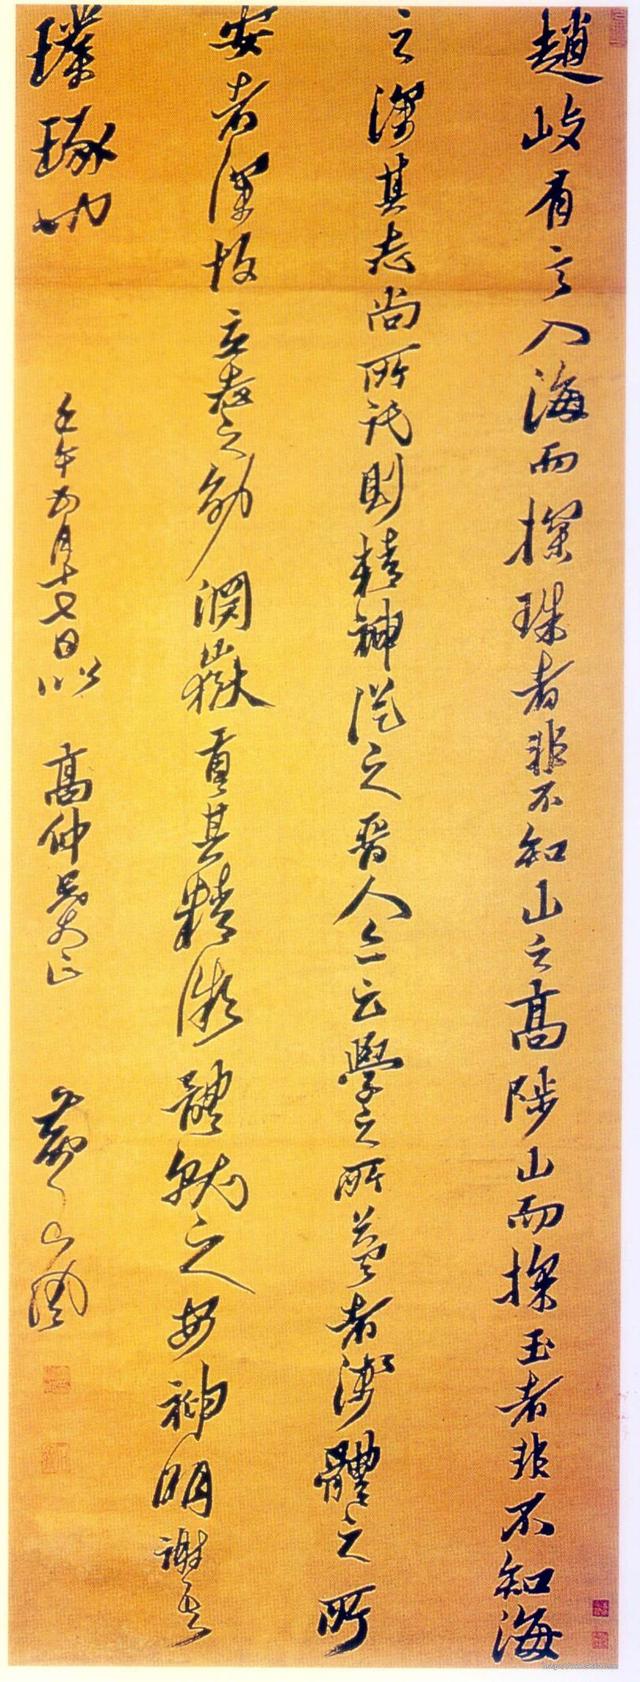 趙岐有言入海而探珠者非不知山之高陟山而探玉者非不知海
之深其志尚所託則精神從之晉人亦云學之所益者淺體之所
安者深故立春之効潤嶽百其精凝體就之安神明謝吾
璞琢也
壬午五月十七日以 高仲兄大正
黃道周